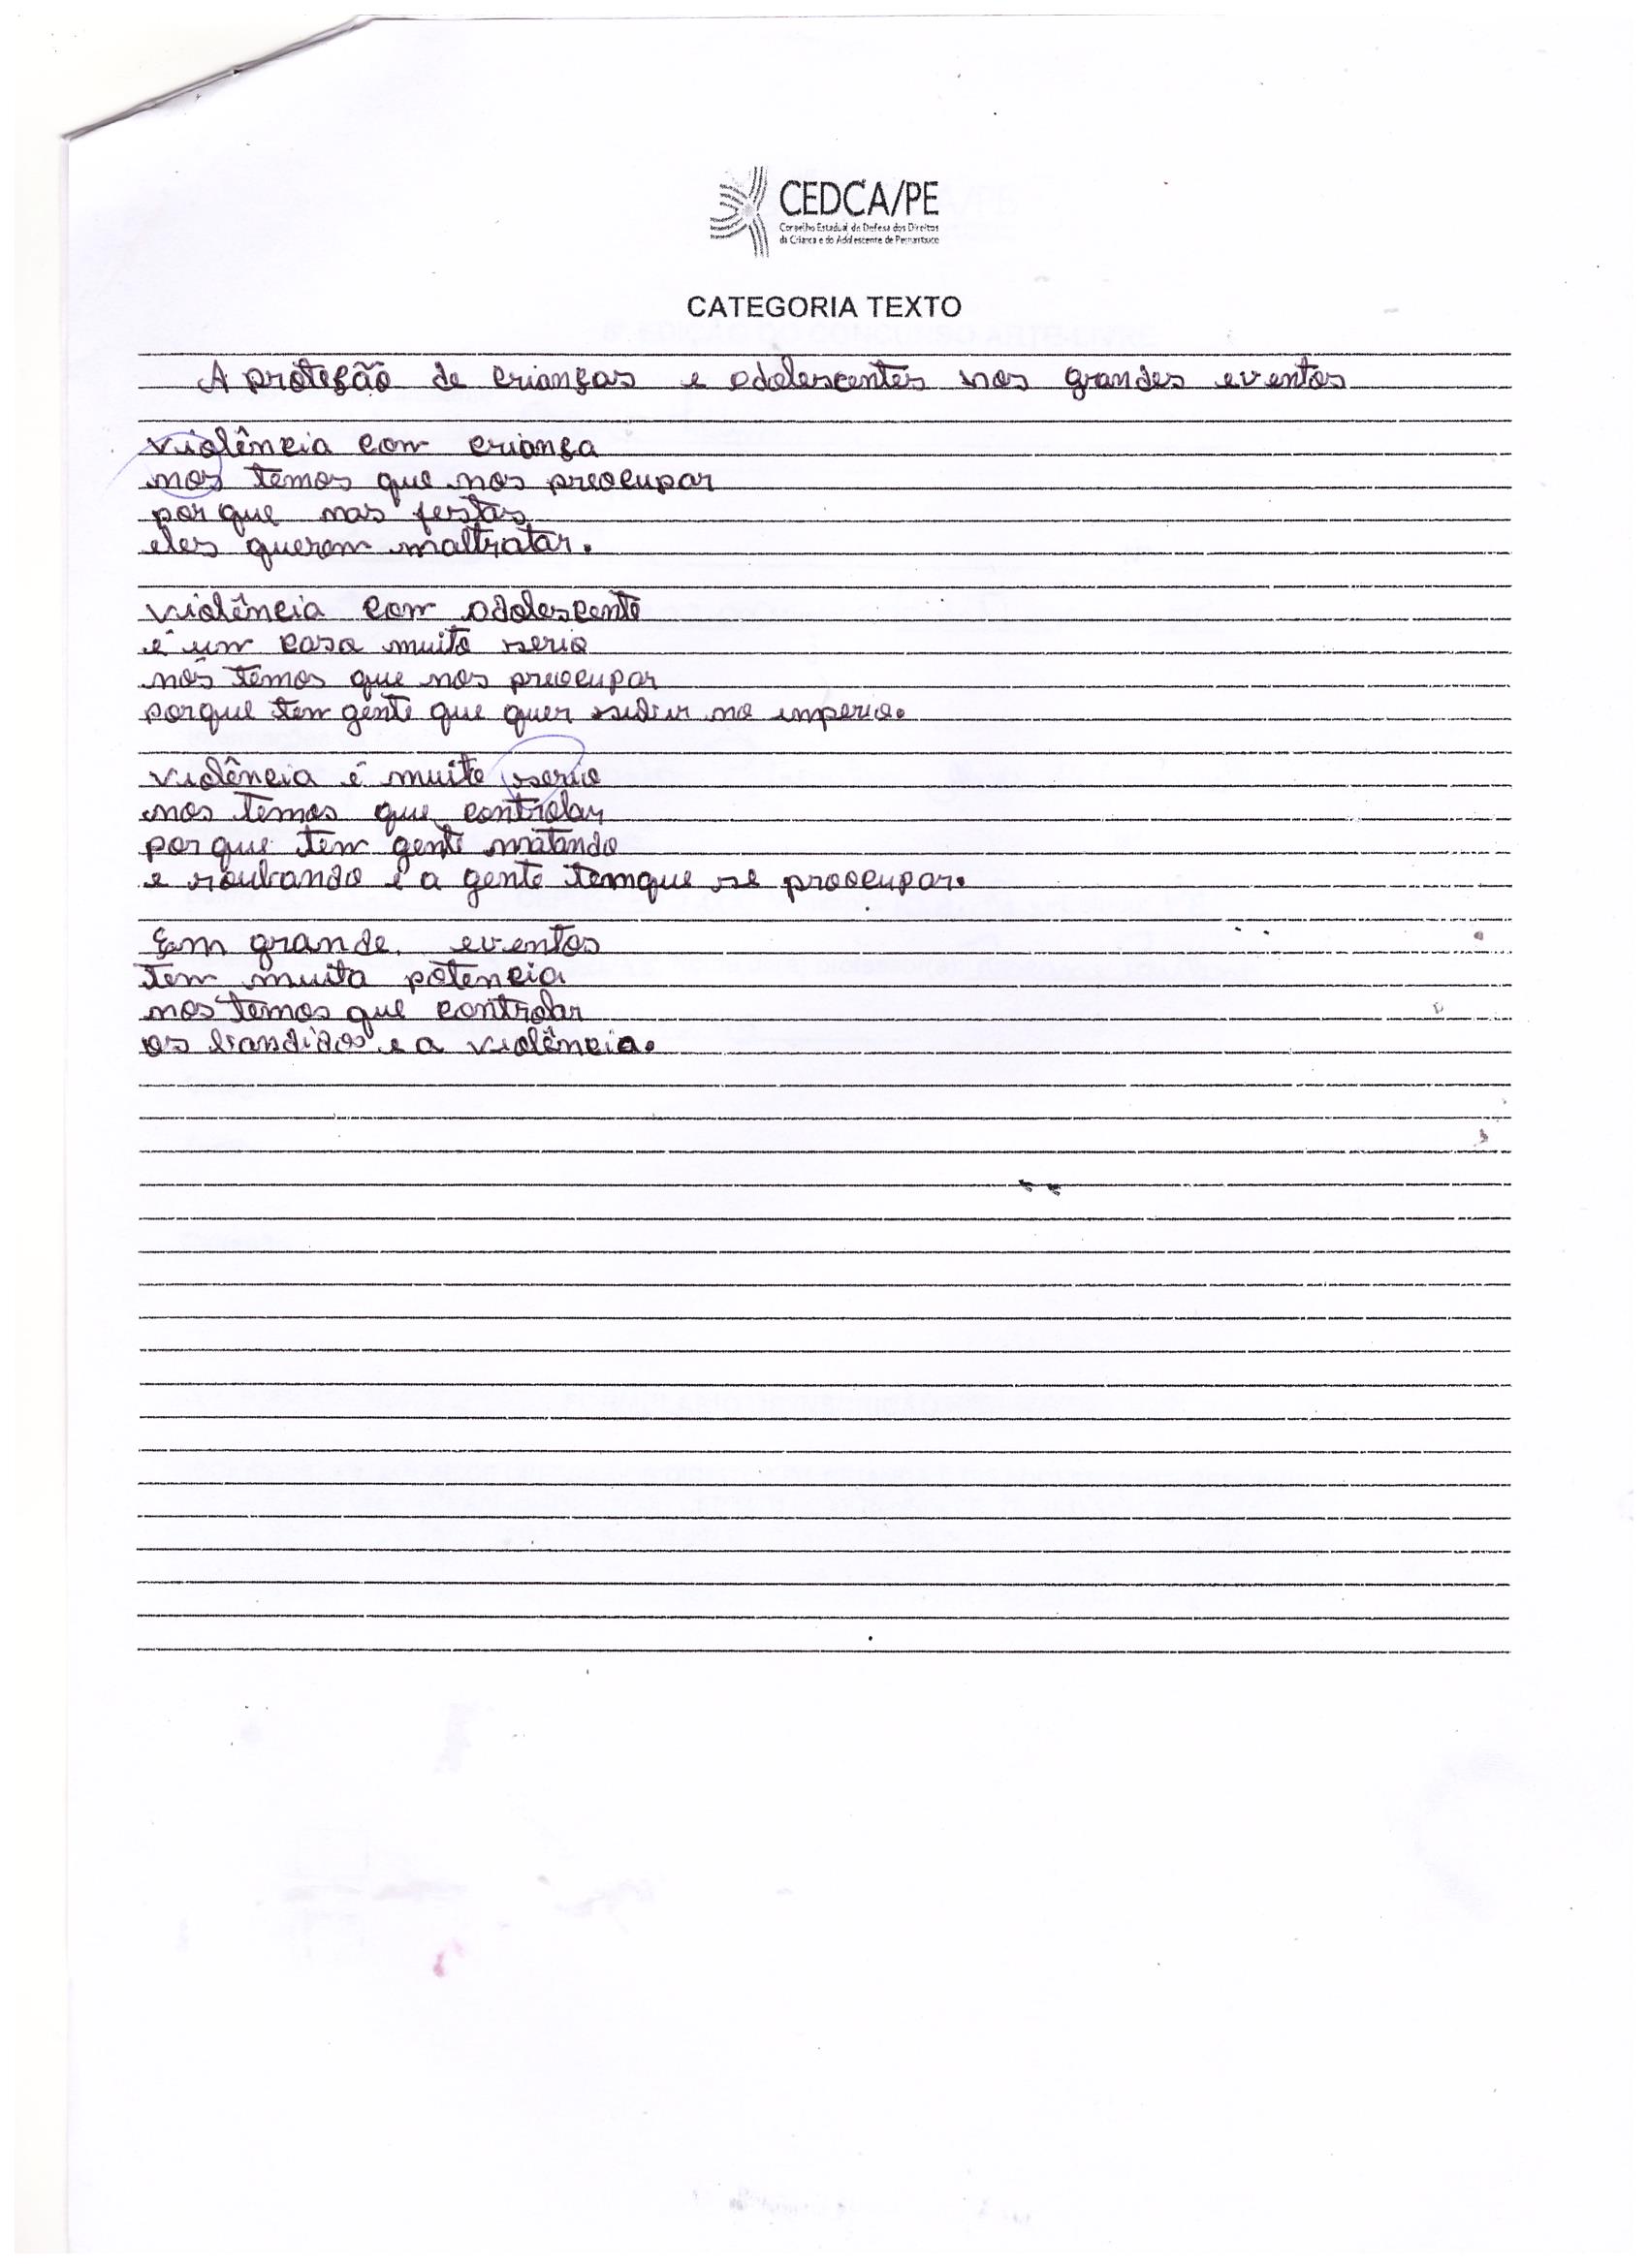 CEDCA/PE
Conselho Estadual de Defesa dos Direitos
da Criança e do Adolescente de Pernambuco
CATEGORIA TEXTO
A proteção de crianças e adolescentes nos grandes eventos
violência com criança
nos temos que nos preocupar
por que nas festas
eles querem maltratar.
violência com adolescente
é um caso muito serio
nós temos que nos preocupar
porque tem gente que quer subir no imperio.
violência é muito serio
nos temos que controlar
por que tem gente matando
e roubando e a gente temque se proocupar.
Em grande eventos
tem muita potencia
nos temos que controlar
os bandidos e a violência.